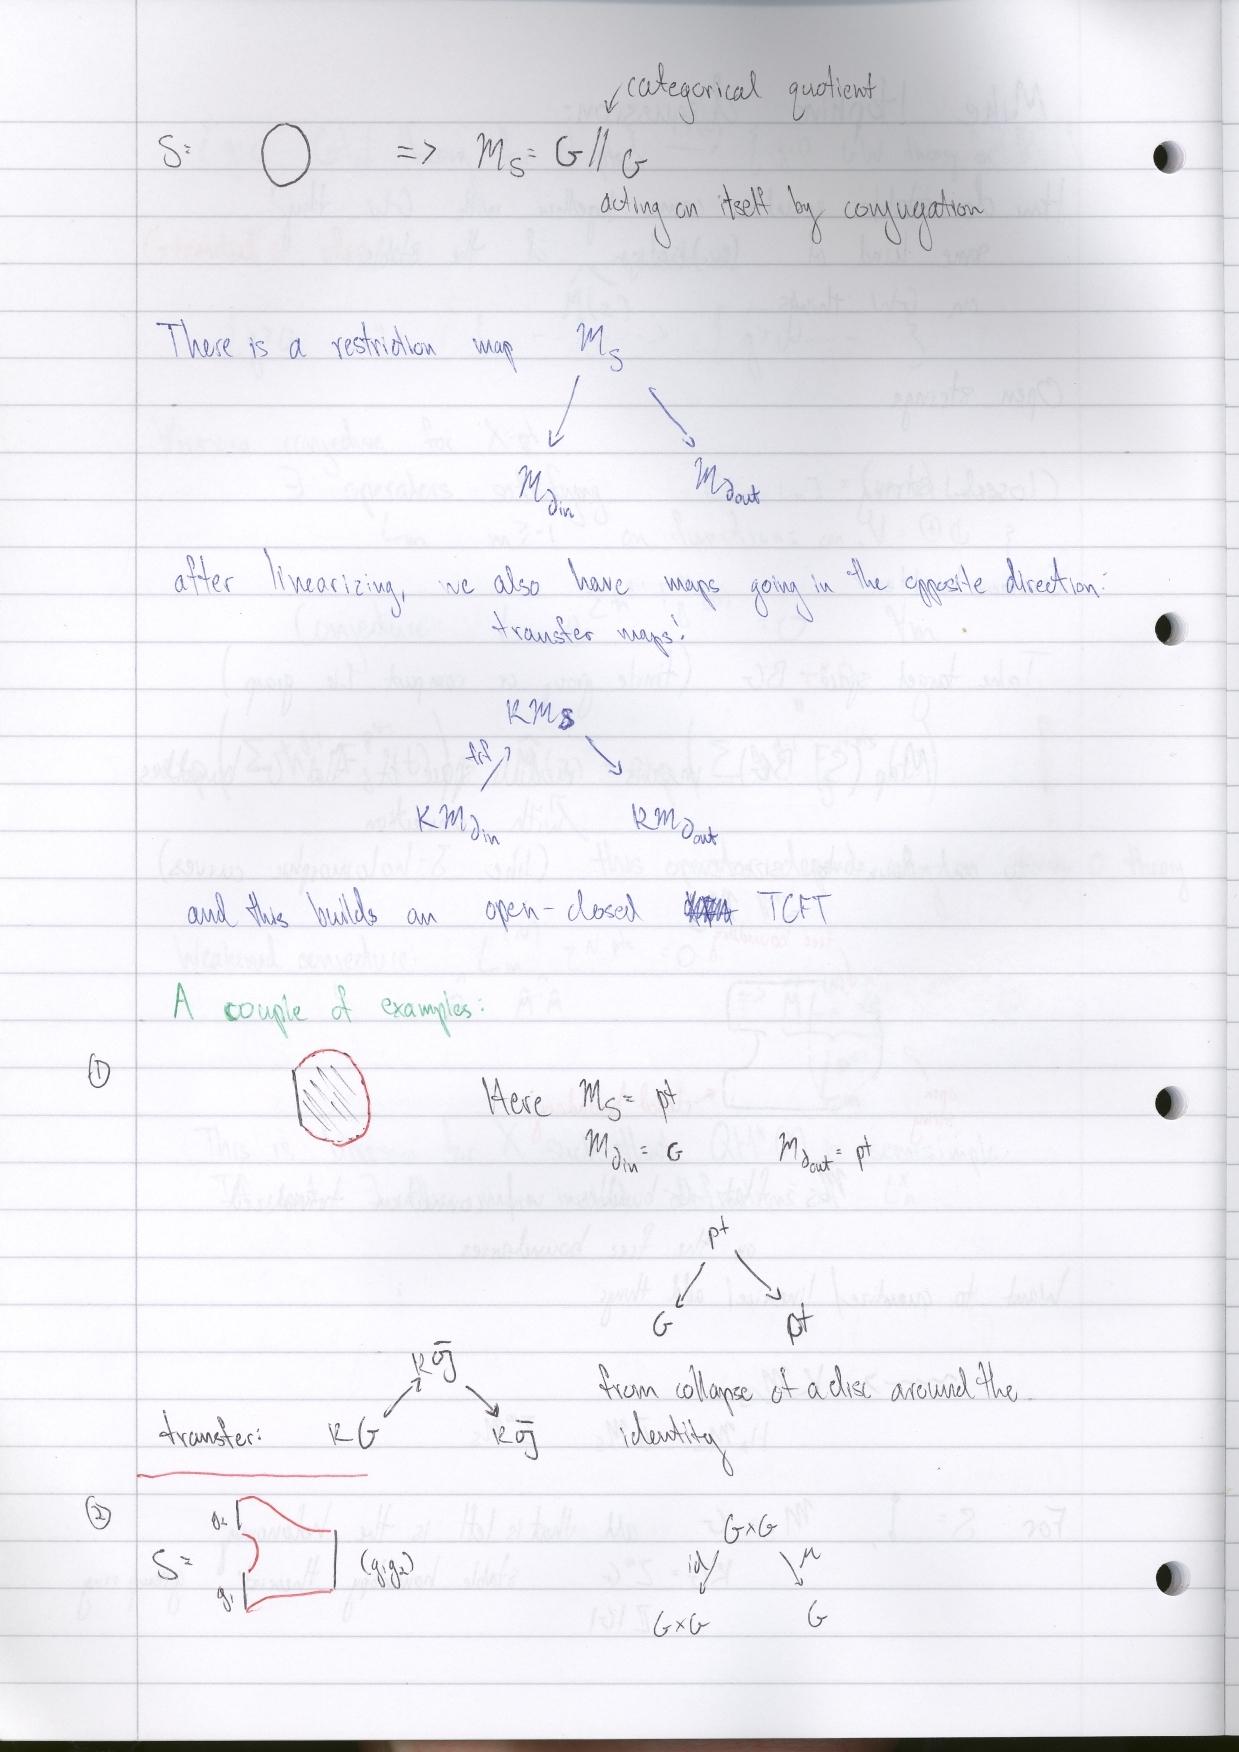 categorical quotient
S= => M_S = G//G
acting on itself by conjugation
There is a restriction map M_S
M_∂in M_∂out
after linearizing, we also have maps going in the opposite direction:
transfer maps!
KM_S
trf
KM_∂in KM_∂out
and this builds an open-closed TCFT
A couple of examples:
① Here M_S = pt
M_∂in = G M_∂out = pt
pt
G pt
from collapse of a disc around the
identity
transfer: KG
② g2
S= (g1g2)
g1
G×G
id μ
G×G G